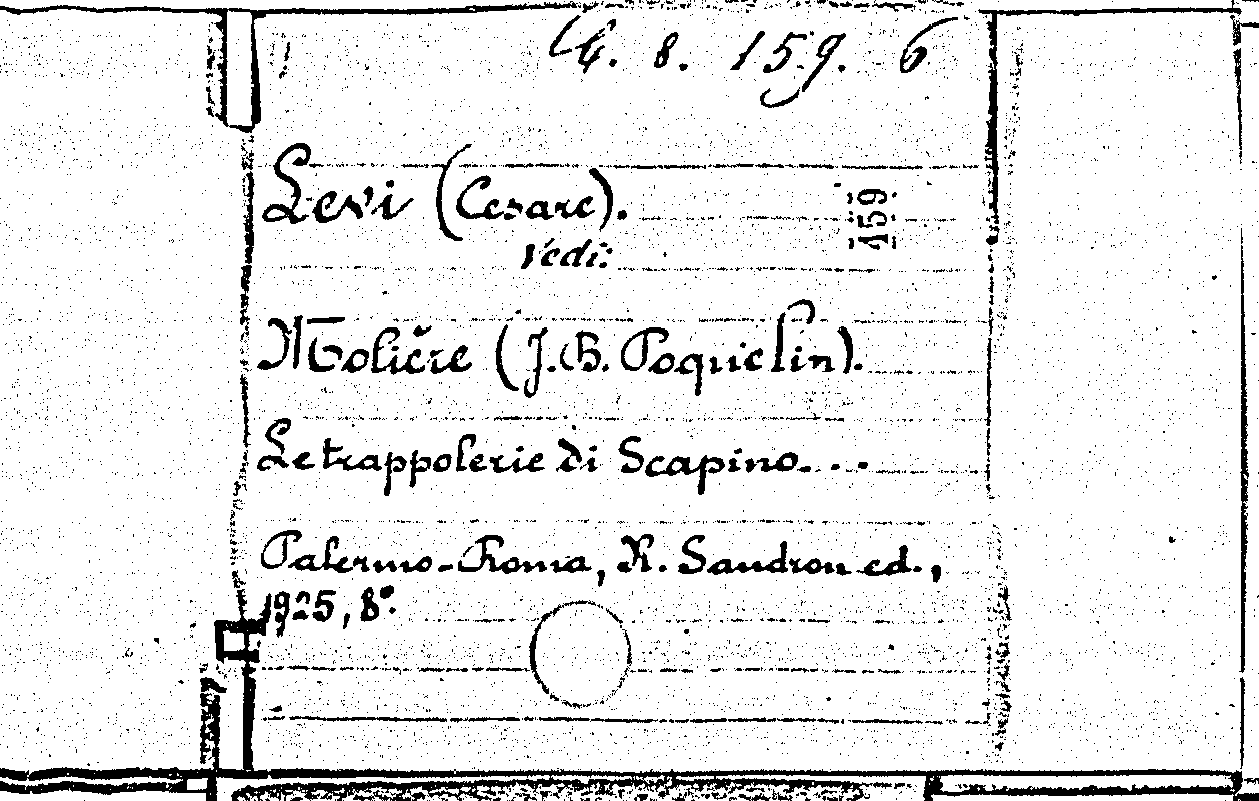 8. 159. 6
Levi (Cesare).
159
Vedi:
Molière (J. B. Poquelin).
Le trappolerie di Scapino...
Palermo-Roma, R. Sandron ed.,
1925, 8°.